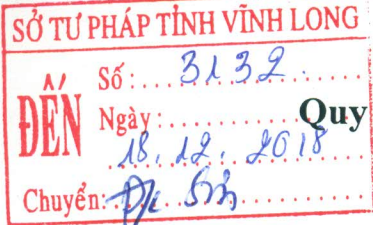 SỞ TƯ PHÁP TỈNH VĨNH LONG
ĐẾN
Số: 3132
Ngày: Quy
18.12.2018
Chuyển: